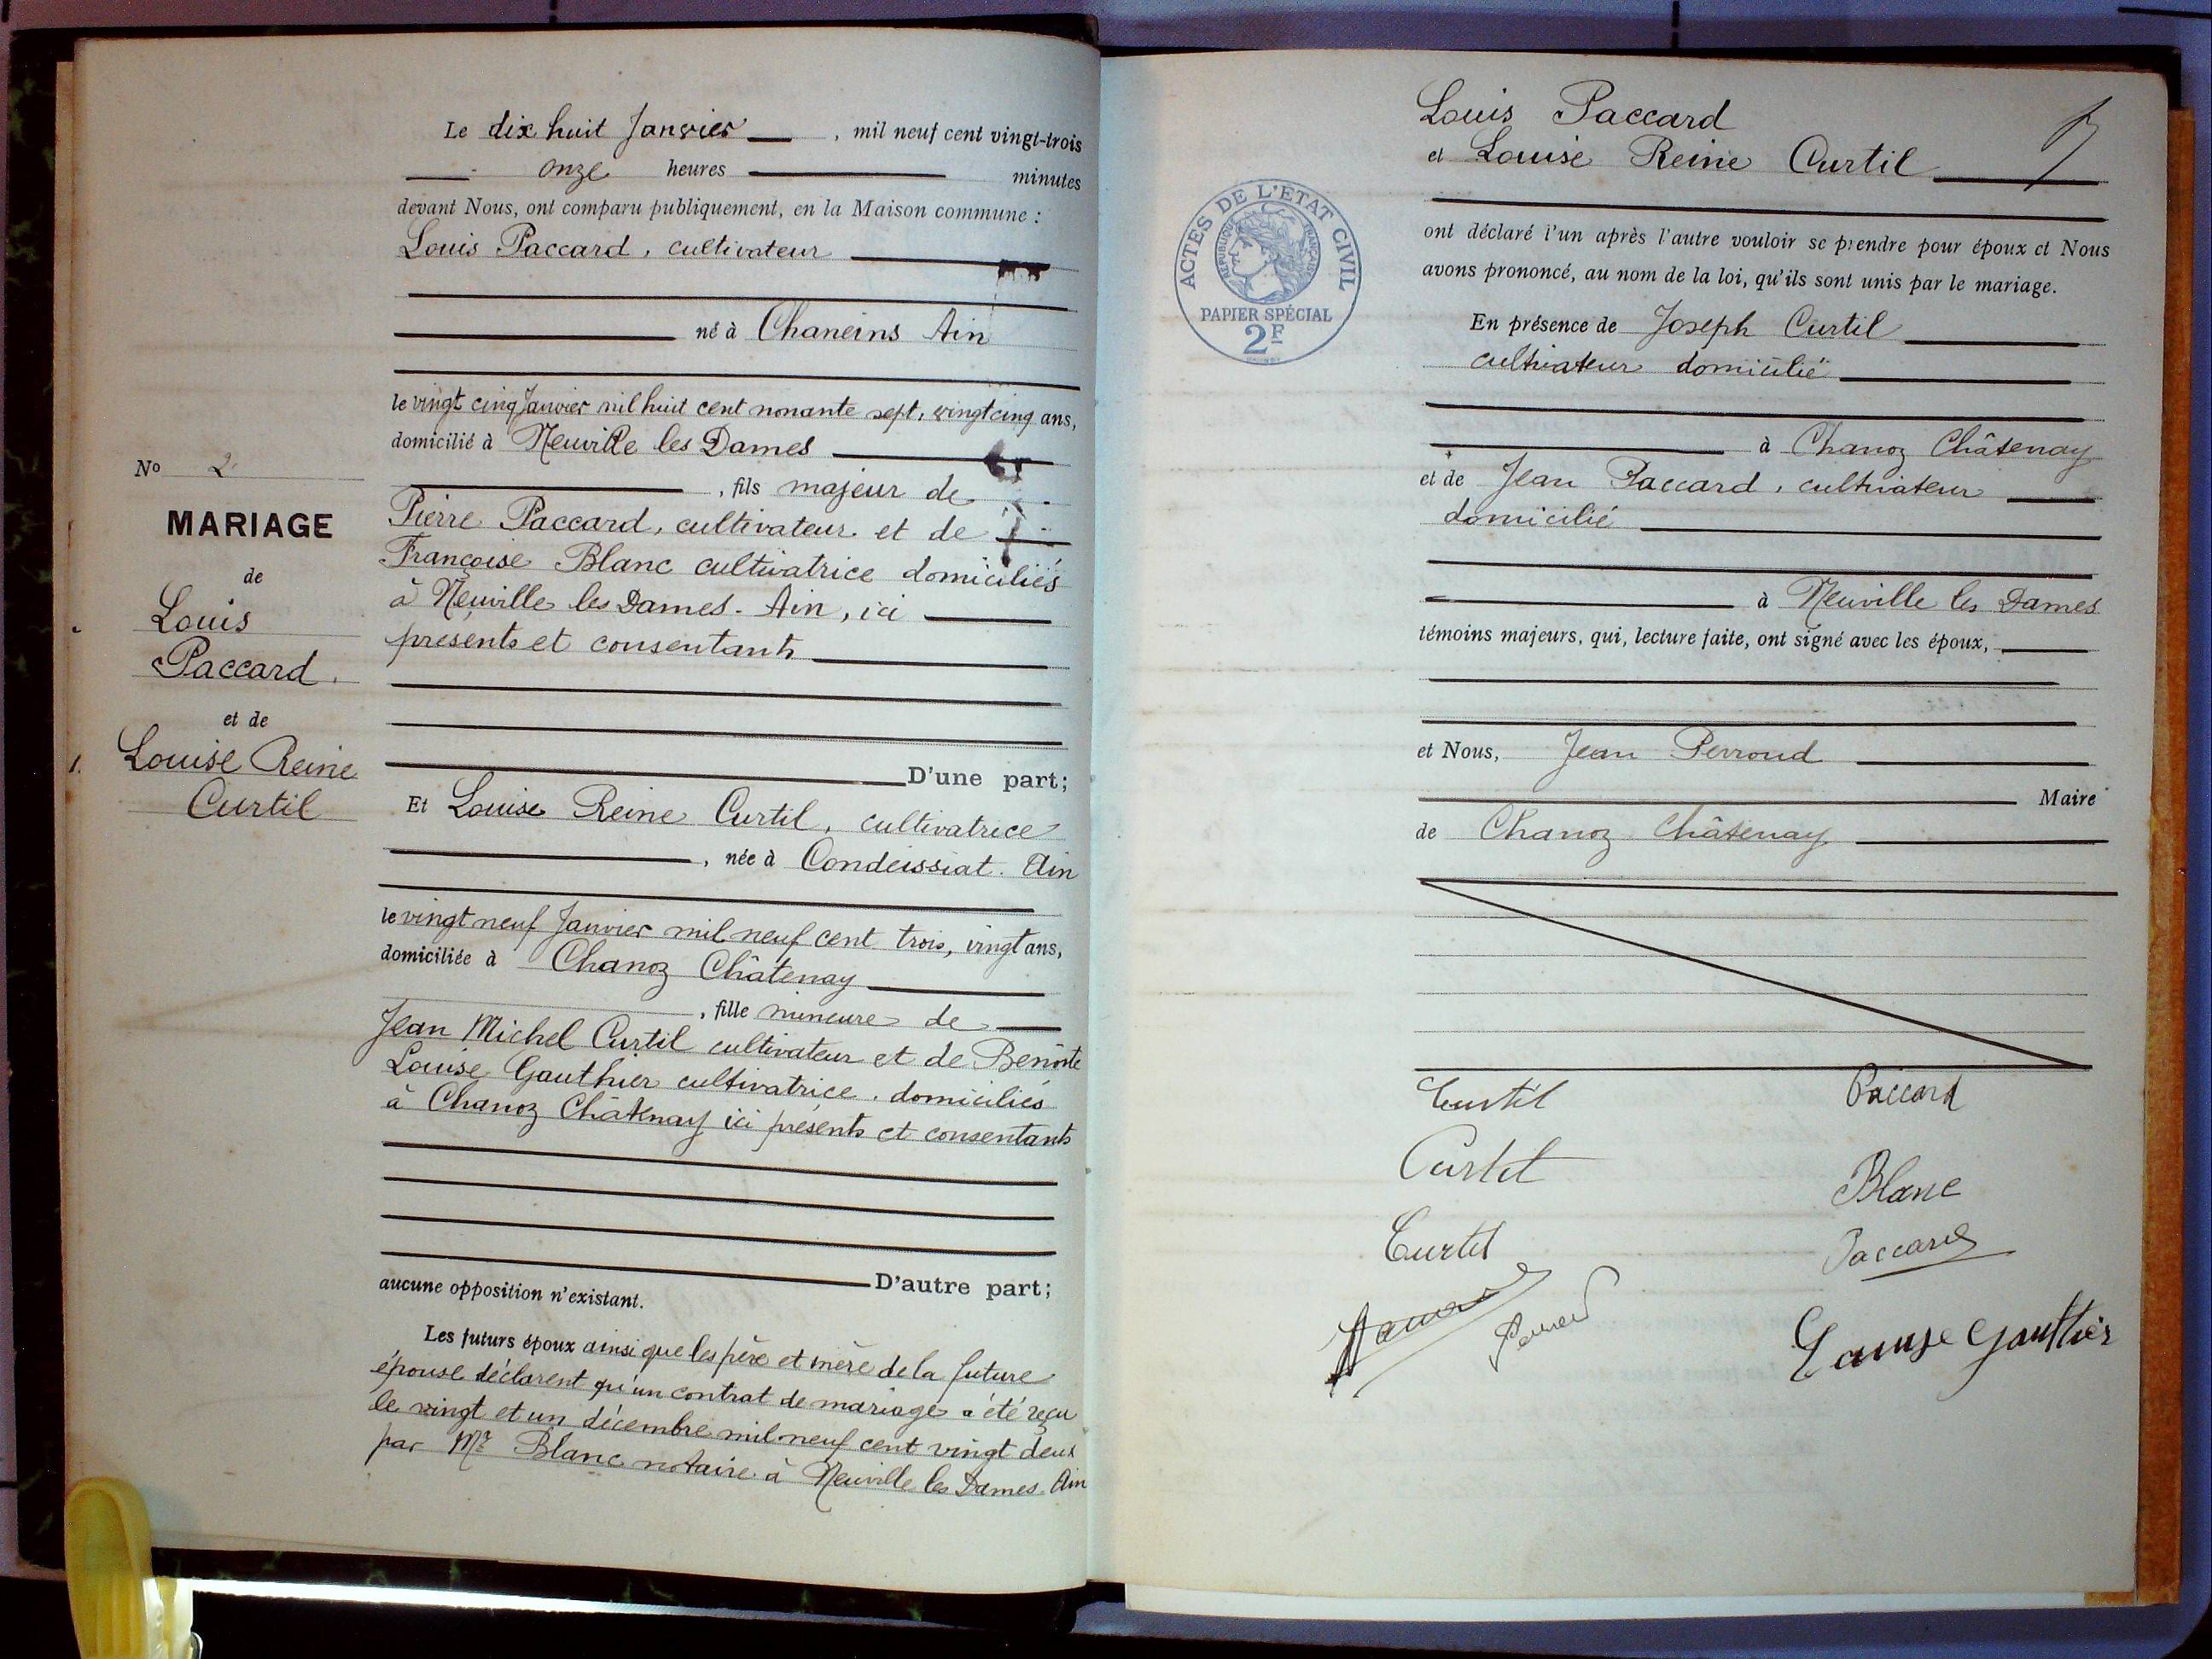 Le dix huit Janvier, mil neuf cent vingt-trois
onze heures minutes
devant Nous, ont comparu publiquement, en la Maison commune :
Louis Paccard, cultivateur
né à Chaneins Ain
le vingt cinq Janvier mil huit cent nonante sept, vingt cinq ans,
domicilié à Neuville les Dames
, fils majeur de
Pierre Paccard, cultivateur et de
Françoise Blanc cultivatrice domiciliés
à Neuville les Dames. Ain, ici
présents et consentants
D'une part;
Et Louise Reine Curtil, cultivatrice
, née à Condeissiat. Ain
le vingt neuf Janvier mil neuf cent trois, vingt ans,
domiciliée à Chanoz Châtenay
, fille mineure de
Jean Michel Curtil cultivateur et de Benoîte
Louise Gauthier cultivatrice, domiciliés
à Chanoz Châtenay ici présents et consentants
D'autre part;
aucune opposition n'existant.
Les futurs époux ainsi que les père et mère de la future
épouse déclarent qu'un contrat de mariage a été reçu
le vingt et un décembre mil neuf cent vingt deux
par Mr Blanc notaire à Neuville les Dames. Ain
No 2
MARIAGE
de
Louis
Paccard.
et de
Louise Reine
Curtil
1.
Louis Paccard
et Louise Reine Curtil
ont déclaré l'un après l'autre vouloir se prendre pour époux et Nous
avons prononcé, au nom de la loi, qu'ils sont unis par le mariage.
En présence de Joseph Curtil
cultivateur domicilié
à Chanoz Châtenay
et de Jean Paccard, cultivateur
domicilié
à Neuville les Dames
témoins majeurs, qui, lecture faite, ont signé avec les époux,
et Nous, Jean Perroud
Maire
de Chanoz Châtenay
ACTES DE L'ÉTAT CIVIL
RÉPUBLIQUE FRANÇAISE
PAPIER SPÉCIAL
2F
Curtil Paccard
Curtil Blanc
Curtil Paccard
Louise Gauthier